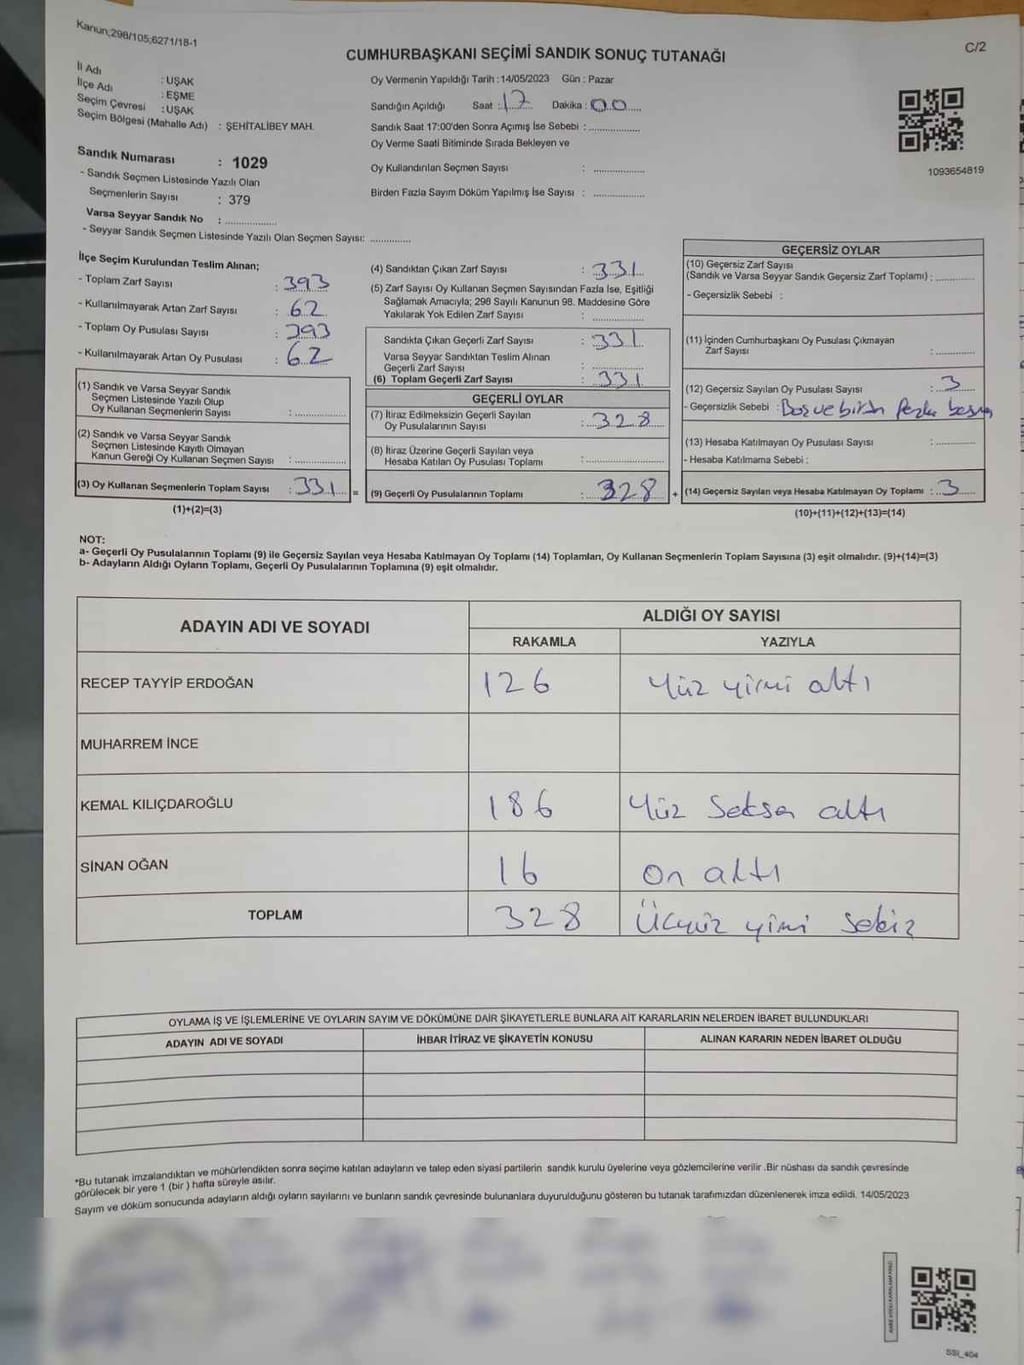 Kanun;298/105,6271/18-1
C/2
CUMHURBAŞKANI SEÇİMİ SANDIK SONUÇ TUTANAĞI
İl Adı : UŞAK
İlçe Adı : EŞME
Seçim Çevresi : UŞAK
Seçim Bölgesi (Mahalle Adı) : ŞEHİTALİBEY MAH.
Sandık Numarası : 1029
- Sandık Seçmen Listesinde Yazılı Olan
Seçmenlerin Sayısı : 379
Varsa Seyyar Sandık No : ..............
- Seyyar Sandık Seçmen Listesinde Yazılı Olan Seçmen Sayısı: ..............
Oy Vermenin Yapıldığı Tarih : 14/05/2023 Gün : Pazar
Sandığın Açıldığı Saat : 17 Dakika : 00
Sandık Saat 17:00'den Sonra Açımış İse Sebebi : ..............
Oy Verme Saati Bitiminde Sırada Bekleyen ve
Oy Kullandırılan Seçmen Sayısı : ..............
Birden Fazla Sayım Döküm Yapılmış İse Sayısı : ..............
1093654819
İlçe Seçim Kurulundan Teslim Alınan;
- Toplam Zarf Sayısı : 393
- Kullanılmayarak Artan Zarf Sayısı : 62
- Toplam Oy Pusulası Sayısı : 393
- Kullanılmayarak Artan Oy Pusulası : 62
(1) Sandık ve Varsa Seyyar Sandık
Seçmen Listesinde Yazılı Olup
Oy Kullanan Seçmenlerin Sayısı : ..............
(2) Sandık ve Varsa Seyyar Sandık
Seçmen Listesinde Kayıtlı Olmayan
Kanun Gereği Oy Kullanan Seçmen Sayısı : ..............
(3) Oy Kullanan Seçmenlerin Toplam Sayısı : 331 =
(1)+(2)=(3)
(4) Sandıktan Çıkan Zarf Sayısı : 331
(5) Zarf Sayısı Oy Kullanan Seçmen Sayısından Fazla İse, Eşitliği
Sağlamak Amacıyla; 298 Sayılı Kanunun 98. Maddesine Göre
Yakılarak Yok Edilen Zarf Sayısı : ..............
Sandıkta Çıkan Geçerli Zarf Sayısı : 331
Varsa Seyyar Sandıktan Teslim Alınan
Geçerli Zarf Sayısı : ..............
(6) Toplam Geçerli Zarf Sayısı : 331
GEÇERLİ OYLAR
(7) İtiraz Edilmeksizin Geçerli Sayılan
Oy Pusulalarının Sayısı : 328
(8) İtiraz Üzerine Geçerli Sayılan veya
Hesaba Katılan Oy Pusulası Toplamı : ..............
(9) Geçerli Oy Pusulalarının Toplamı : 328 +
GEÇERSİZ OYLAR
(10) Geçersiz Zarf Sayısı
(Sandık ve Varsa Seyyar Sandık Geçersiz Zarf Toplamı) : ..............
- Geçersizlik Sebebi :
(11) İçinden Cumhurbaşkanı Oy Pusulası Çıkmayan
Zarf Sayısı : ..............
(12) Geçersiz Sayılan Oy Pusulası Sayısı : 3
- Geçersizlik Sebebi : Boş ve birden fazla
(13) Hesaba Katılmayan Oy Pusulası Sayısı : ..............
- Hesaba Katılmama Sebebi :
(14) Geçersiz Sayılan veya Hesaba Katılmayan Oy Toplamı : 3
(10)+(11)+(12)+(13)=(14)
NOT:
a- Geçerli Oy Pusulalarının Toplamı (9) ile Geçersiz Sayılan veya Hesaba Katılmayan Oy Toplamı (14) Toplamları, Oy Kullanan Seçmenlerin Toplam Sayısına (3) eşit olmalıdır. (9)+(14)=(3)
b- Adayların Aldığı Oyların Toplamı, Geçerli Oy Pusulalarının Toplamına (9) eşit olmalıdır.
ADAYIN ADI VE SOYADI ALDIĞI OY SAYISI
RAKAMLA YAZIYLA
RECEP TAYYİP ERDOĞAN 126 Yüz yirmi altı
MUHARREM İNCE
KEMAL KILIÇDAROĞLU 186 Yüz Seksen altı
SİNAN OĞAN 16 on altı
TOPLAM 328 Üçyüz yirmi sekiz
OYLAMA İŞ VE İŞLEMLERİNE VE OYLARIN SAYIM VE DÖKÜMÜNE DAİR ŞİKAYETLERLE BUNLARA AİT KARARLARIN NELERDEN İBARET BULUNDUKLARI
ADAYIN ADI VE SOYADI İHBAR İTİRAZ VE ŞİKAYETİN KONUSU ALINAN KARARIN NEDEN İBARET OLDUĞU
*Bu tutanak imzalandıktan ve mühürlendikten sonra seçime katılan adayların ve talep eden siyasi partilerin sandık kurulu üyelerine veya gözlemcilerine verilir .Bir nüshası da sandık çevresinde
görülecek bir yere 1 (bir ) hafta süreyle asılır.
Sayım ve döküm sonucunda adayların aldığı oyların sayılarını ve bunların sandık çevresinde bulunanlara duyurulduğunu gösteren bu tutanak tarafımızdan düzenlenerek imza edildi. 14/05/2023
SSI_404